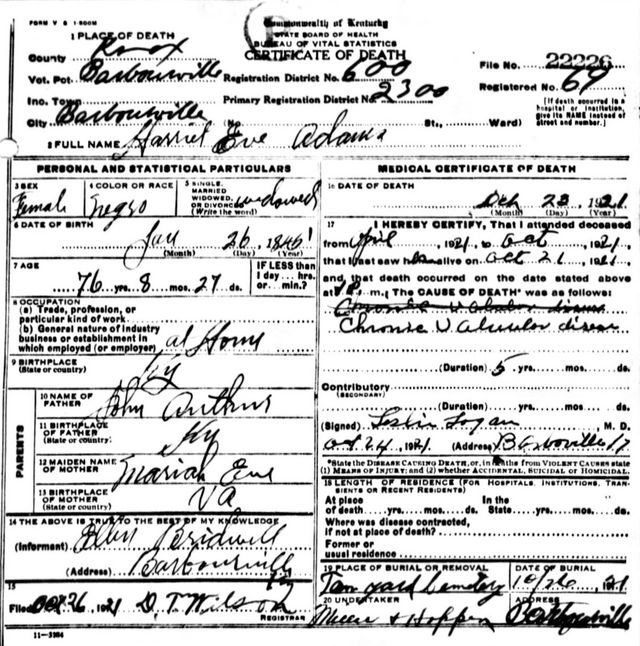 FORM V S 1-500M
Commonwealth of Kentucky
STATE BOARD OF HEALTH
BUREAU OF VITAL STATISTICS
CERTIFICATE OF DEATH
1 PLACE OF DEATH
County Knox
File No. 22226
Vot. Pct Barbourville Registration District No. 600
Registered No. 69
Inc. Town Primary Registration District No. 2300
[If death occurred in a hospital or institution, give its NAME instead of street and number.]
City Barbourville (No. St., Ward)
2 FULL NAME Harriet Eve Adams
PERSONAL AND STATISTICAL PARTICULARS
3 SEX Female
4 COLOR OR RACE Negro
5 SINGLE, MARRIED WIDOWED, OR DIVORCED (Write the word) widowed
6 DATE OF BIRTH
Jan 26, 1846
(Month) (Day) (Year)
7 AGE
76 yrs. 8 mos. 27 ds.
IF LESS than 1 day... hrs. or... min.?
8 OCCUPATION
(a) Trade, profession, or particular kind of work
(b) General nature of industry business or establishment in which employed (or employer) at Home
9 BIRTHPLACE
(State or country) Ky
PARENTS
10 NAME OF FATHER John Arthur
11 BIRTHPLACE OF FATHER (State or country) Ky
12 MAIDEN NAME OF MOTHER Mariah Eve
13 BIRTHPLACE OF MOTHER (State or country) VA
14 THE ABOVE IS TRUE TO THE BEST OF MY KNOWLEDGE
(Informant) Bridwell
(Address) Barbourville
15
Filed Oct 26, 1921 D. T. Wilson
REGISTRAR
11-3984
MEDICAL CERTIFICATE OF DEATH
16 DATE OF DEATH
Oct 23 1921
(Month) (Day) (Year)
17 I HEREBY CERTIFY, That I attended deceased
from April, 1921, to Oct, 1921,
that I last saw h alive on Oct 21, 1921,
and that death occurred on the date stated above
at m. The CAUSE OF DEATH* was as follows:
Chronic Valvular disease
Chronic Valvular disease
(Duration) 5 yrs. mos. ds.
Contributory
(SECONDARY)
(Duration) yrs. mos. ds.
(Signed) Leslie Logan, M. D.
Oct 24, 1921. (Address) Barboville Ky
*State the DISEASE CAUSING DEATH, or, in deaths from VIOLENT CAUSES state (1) MEANS OF INJURY; and (2) whether ACCIDENTAL, SUICIDAL or HOMICIDAL.
18 LENGTH OF RESIDENCE (FOR HOSPITALS, INSTITUTIONS, TRANSIENTS OR RECENT RESIDENTS)
At place of death yrs. mos. ds. In the State yrs. mos. ds.
Where was disease contracted, if not at place of death?
Former or usual residence
19 PLACE OF BURIAL OR REMOVAL Tan yard Cemetery
DATE OF BURIAL 10/26, 1921
20 UNDERTAKER Miller & Hopper
ADDRESS Barbourville